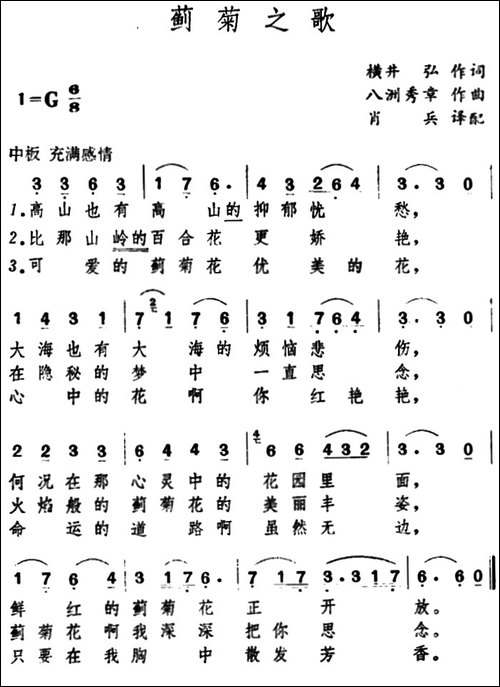 蓟菊之歌
横井 弘 作词
1=G 6/8
八洲秀章 作曲
肖 兵 译配
中板 充满感情
3 3 6 3 | 1 7 6. | 4 3 2 6 4 | 3. 3 0
1.高山也有高山的抑郁忧愁,
2.比那山岭的百合花更娇艳,
3.可爱的蓟菊花优美的花,
1 4 3 1 | 7 1 7 6 | 3 1 7 6 4 | 3. 3 0
大海也有大海的烦恼悲伤,
在隐秘的梦中一直思念,
心中的花啊你红艳艳,
2 2 3 3 | 6 4 4 3 | 6 6 4 3 2 | 3. 3 0
何况在那心灵中的花园里面,
火焰般的蓟菊花的美丽丰姿,
命运的道路啊虽然无边,
1 7 6 4 | 3 1 7 6. | 7 1 7 3. 3 1 7 | 6. 6 0
鲜红的蓟菊花正开放。
蓟菊花啊我深深把你思念。
只要在我胸中散发芳香。